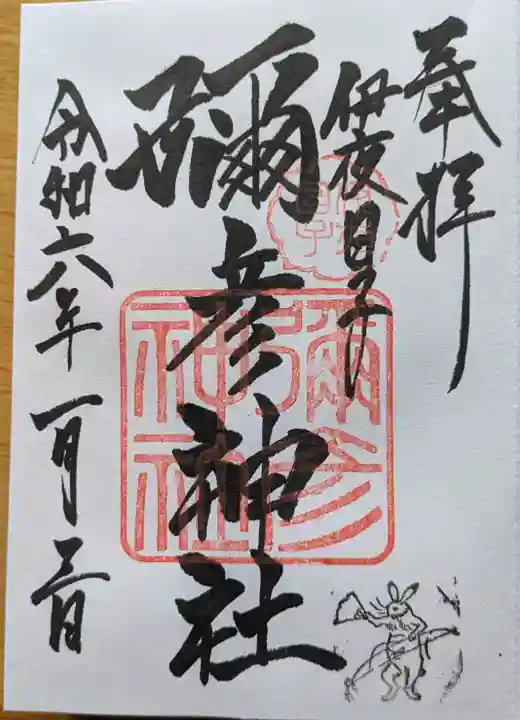 奉拝
伊夜日子
彌彦神社
彌彦
神社
令和六年一月三日